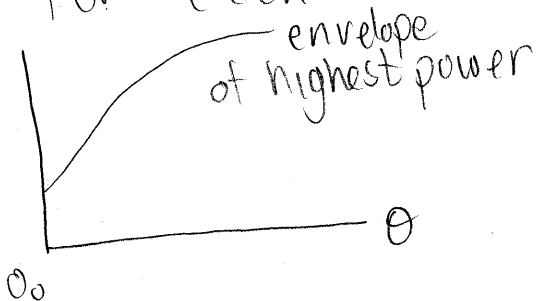 envelope
of highest power
θ
θ₀